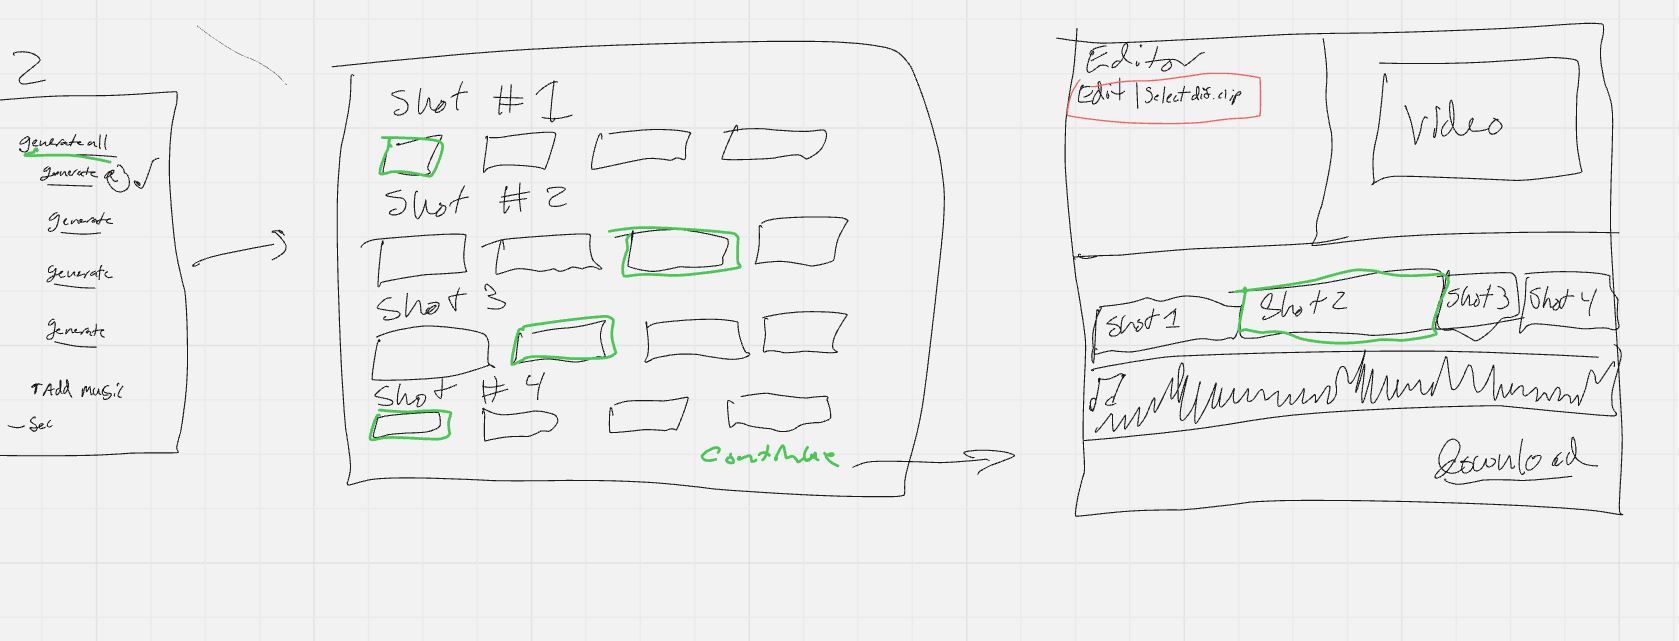 2
generate all
generate
generate
generate
generate
↑Add music
- Sec
Shot # 1
Shot # 2
Shot 3
Shot # 4
Continue
Editor
Edit | Select dif. clip
Video
Shot 1
Shot 2
Shot 3
Shot 4
Download